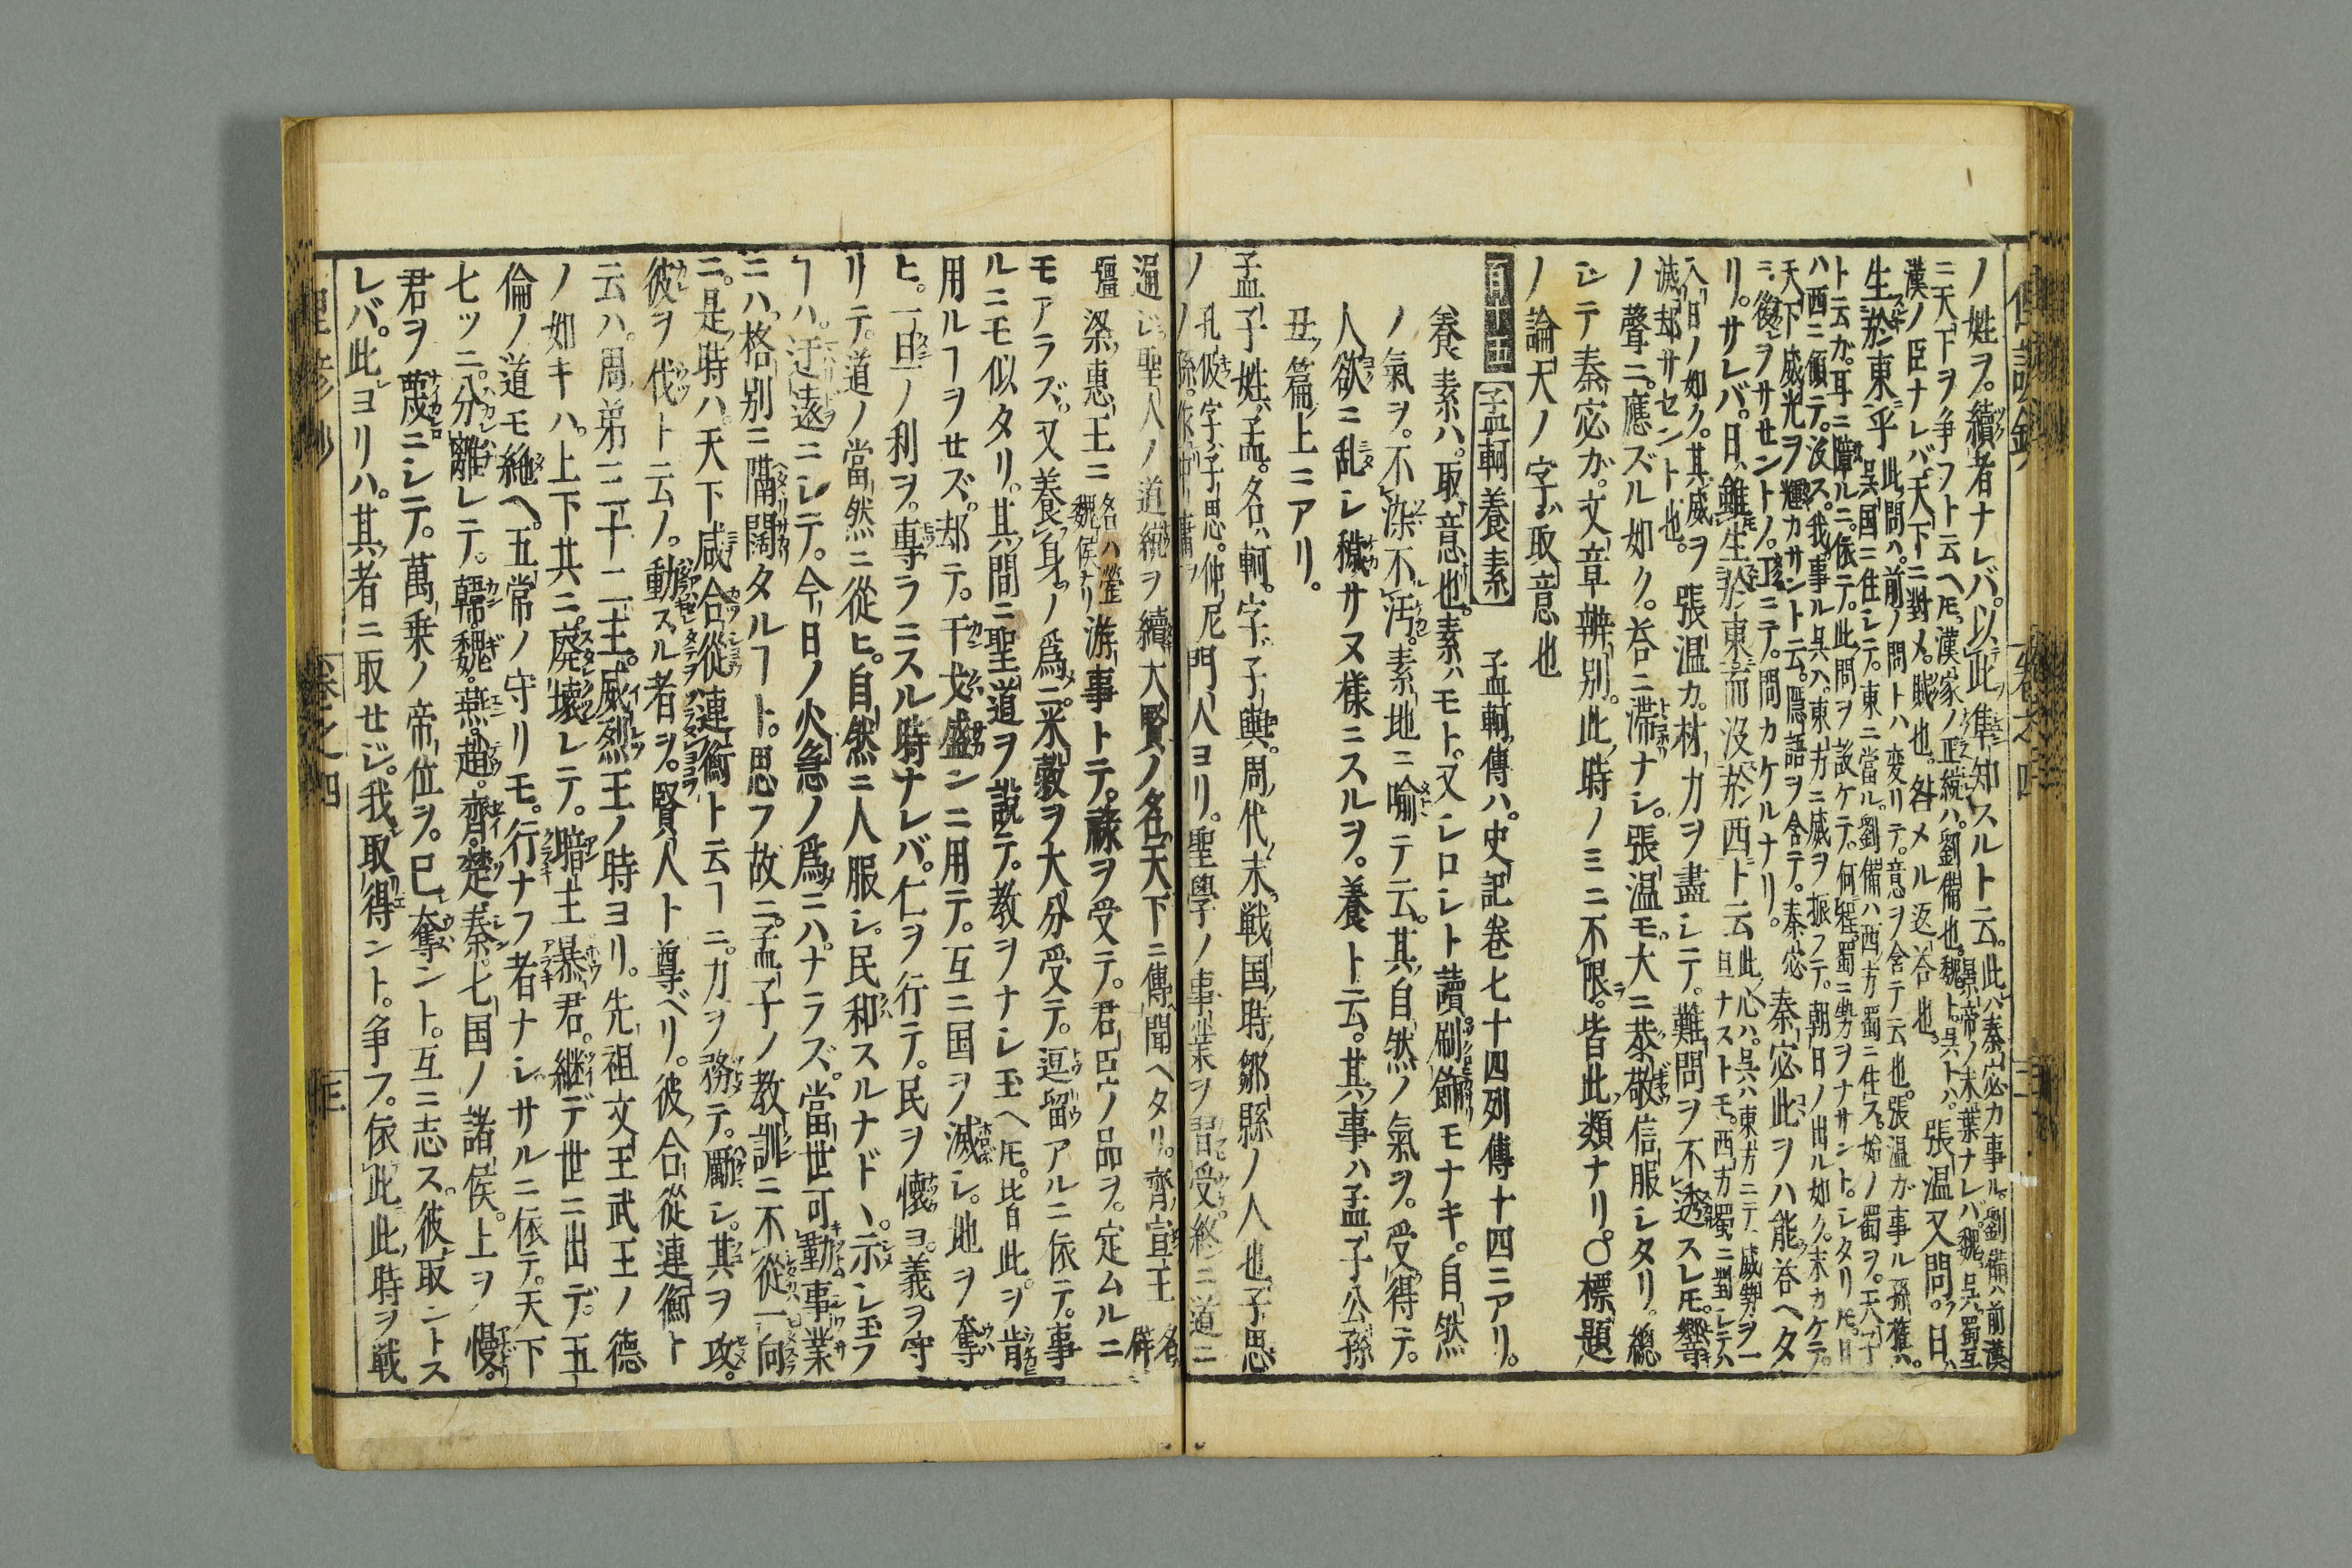 ノ姓ヲ。續者ナレバ。以此隼知スルト云。此ハ秦宓カ事ル。劉備ハ前漢
景帝ノ末葉ナレバ。魏。呉。蜀互
ニ天下ヲ争フト云ヘ𪜈。漢家ノ正統ハ。劉備也。魏ト。呉トハ。
漢ノ臣ナレバ。天下ニ對〆。賊也。咎メル返荅也。 張温又問。曰。
生於東乎 此問ハ。前ノ問トハ変リテ。意ヲ含テ云也。張温ガ事ル孫権ハ。
呉国ニ住シテ。東ニ當ル。劉備ハ西方蜀ニ住ス。始ノ蜀ヲ。天子
ト云ガ。耳ニ障ルニ依テ。此問ヲ設ケテ。何程蜀ニ勢ヲナサント。シタリ𪜈。日
ハ西ニ傾テ。没ス。我事ル呉ハ。東方ニ威ヲ振フテ。朝日ノ出ル如ク。末カケテ。
天下ニ威光ヲ輝カサント云。隠語ヲ含テ。秦宓
ニ。後ヲサセントノ。工ニテ。問カケルナリ。 秦宓此ヲハ能荅ヘタ
リ。サレバ。日雖生於東而没於西ト云 此心ハ。呉ハ東方ニテ威勢ヲ一
旦ナストモ。西方蜀ニ對シテハ
入日ノ如ク。其威ヲ
滅却サセント也。 張温カ。材力ヲ盡シテ。難問ヲ不透スレ𪜈。響
ノ聲ニ應ズル如ク。荅ニ滞ナシ。張温モ。大ニ恭敬信服シタリ。總
シテ秦宓ガ。文章辨別。此時ノミニ不限。皆此類ナリ。〇標題
ノ論天ノ字取意也
孟軻養素 孟軻傳ハ。史記卷七十四列傳十四ニアリ。
養素ハ。取意也。素ハモト。又シロシト讀刷飾モナキ。自然
ノ氣ヲ。不染不汚。素地ニ喩テ云。其自然ノ氣ヲ。受得テ。
人欲ニ乱レ穢サヌ様ニスルヲ。養ト云。其事ハ孟子公孫
丑篇上ニアリ。
孟子姓孟。名軻。字子輿。周代末。戦国時。鄒縣ノ人也。子思
ノ 孔伋字子思。仲尼
ノ孫。作中庸ヲ 門人ヨリ。聖學ノ事業ヲ習受。終ニ道ニ
通ジ。聖人ノ道統ヲ續大賢ノ名天下ニ傳聞ヘタリ。齊宣王 名
辟
疆 梁惠王ニ 名ハ罃
魏侯ナリ 游事トテ。祿ヲ受テ。君臣ノ品ヲ。定ムルニ
モアラズ。又養身ノ爲ニ。米穀ヲ大分受テ。逗留アルニ依テ。事
ルニモ似タリ。其間ニ聖道ヲ說テ。教ヲナシ玉ヘ𪜈。皆此ヲ肯
用ルヿヲせズ。却テ。干戈盛ンニ用テ。互ニ国ヲ滅シ。地ヲ奪
ヒ。一旦ノ利ヲ。專ラニスル時ナレバ。仁ヲ行テ。民ヲ懷ヨ。義ヲ守
リテ。道ノ當然ニ從ヒ。自然ニ人服シ。民和スルナド丶。示シ玉フ
ヿハ。迂遠ニシテ。今日ノ火急ノ爲ニハ。ナラズ。當世可勤事業
ニハ。格別ニ隔闊タルヿト。思フ故ニ。孟子ノ教訓ニ不從一向
ニ。是時ハ。天下咸合從連衡ト云ヿニ。力ヲ務テ。勵シ。其ヲ攻。
彼ヲ伐ト云ノ。動スル者ヲ。賢人ト尊ベリ。彼合從連衡ト
云ハ。周第三十二主。威烈王ノ時ヨリ。先祖文王武王ノ德
ノ如キハ。上下共ニ。廃壊レテ。暗主暴君。継デ世ニ出デ。五
倫ノ道モ絶ヘ。五常ノ守リモ。行ナフ者ナシサルニ依テ。天下
七ツニ。分離レテ。韓。魏。燕。趙。齊。楚。秦。七国ノ諸侯。上ヲ慢。
君ヲ蔑ニシテ。萬乗ノ帝位ヲ。已奪ント。互ニ志ス。彼取ントス
レバ。此ヨリハ。其者ニ取せジ。我取得ント。争フ。依此此時ヲ戦
卷之四